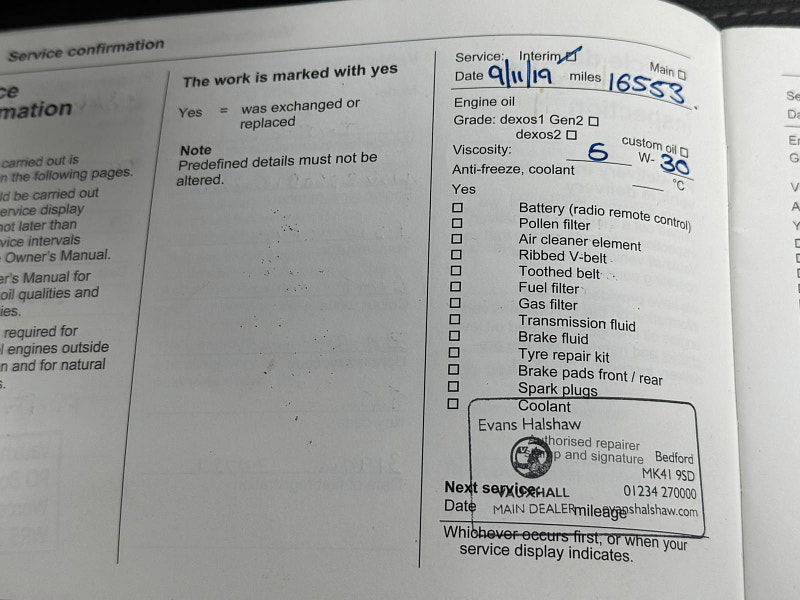 Service confirmation
ce
mation
carried out is
n the following pages.
ld be carried out
ervice display
not later than
vice intervals
Owner's Manual.
er's Manual for
oil qualities and
ies.
required for
l engines outside
n and for natural
s.
The work is marked with yes
Yes = was exchanged or
replaced
Note
Predefined details must not be
altered.
Service: Interim ☑ Main ☐
Date 9/11/19 miles 16553
Engine oil
Grade: dexos1 Gen2 ☐
dexos2 ☐ custom oil ☐
Viscosity: 6 W- 30
Anti-freeze, coolant ___ °C
Yes
☐ Battery (radio remote control)
☐ Pollen filter
☐ Air cleaner element
☐ Ribbed V-belt
☐ Toothed belt
☐ Fuel filter
☐ Gas filter
☐ Transmission fluid
☐ Brake fluid
☐ Tyre repair kit
☐ Brake pads front / rear
☐ Spark plugs
☐ Coolant
Evans Halshaw
Authorised repairer
p and signature
Bedford
MK41 9SD
Next service:
VAUXHALL 01234 270000
Date mileage
MAIN DEALER evanshalshaw.com
Whichever occurs first, or when your
service display indicates.